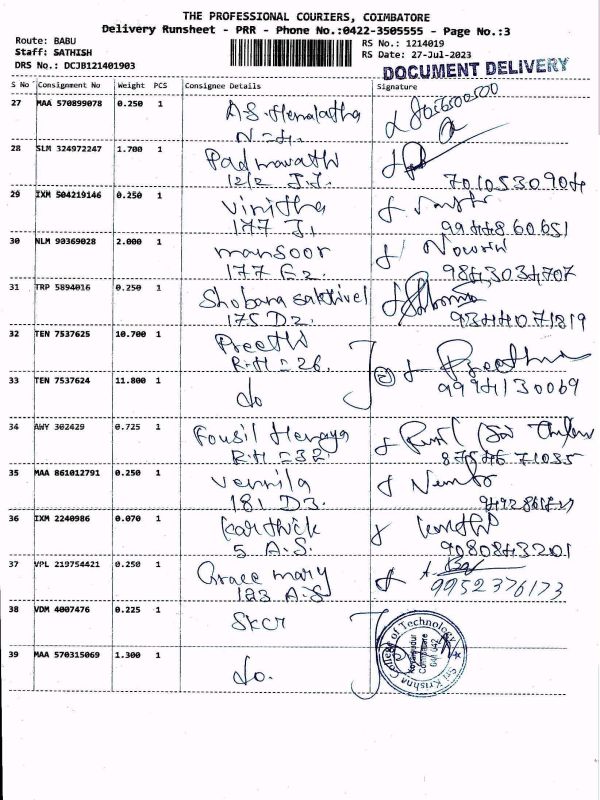 THE PROFESSIONAL COURIERS, COIMBATORE
Delivery Runsheet - PRR - Phone No.:0422-3505555 - Page No.:3
Route: BABU
RS No.: 1214019
Staff: SATHISH
RS Date: 27-Jul-2023
DRS No.: DCJB121401903
DOCUMENT DELIVERY
S No Consignment No Weight PCS Consignee Details Signature
27 MAA 570899078 0.250 1 A.S. Hemalatha
N-H.
28 SLM 324972247 1.700 1 Padmavathi
12/2 J.J. 7010530904
29 IXM 504219146 0.250 1 Vinitha
177 J1 9944860651
30 NLM 90369028 2.000 1 mansoor
177 E2. 9843034707
31 TRP 5894016 0.250 1 Shobana sakthivel
175 D2. 9344071819
32 TEN 7537625 10.700 1 Preethi Preetha
R.H = 26.
33 TEN 7537624 11.800 1 do 9994130069
34 AWY 302429 0.725 1 Fousil
R.H = 32 8754671035
35 MAA 861012791 0.250 1 Vennila
181 D3.
36 IXM 2240986 0.070 1 Karthick
5 A.S. 9080843201
37 VPL 219754421 0.250 1 Grace mary
123 A.S 9952376173
38 VDM 4007476 0.225 1 SKCT
39 MAA 570315069 1.300 1 do.
Sri Krishna College of Technology
Kovaipudur
Coimbatore
641 042